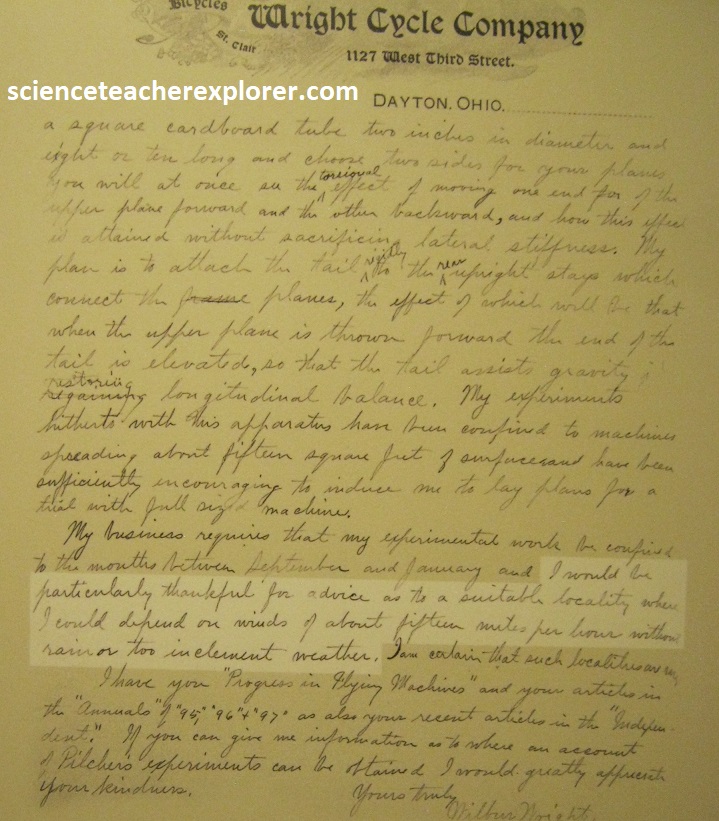 Bicycles
St. Clair
Wright Cycle Company
1127 West Third Street.
scienceteacherexplorer.com
DAYTON, OHIO.
a square cardboard tube two inches in diameter and
eight or ten long and choose two sides for your planes
you will at once see the torsional effect of moving one end of the
upper plane forward and the other backward, and how this effect
is attained without sacrificing lateral stiffness. My
plan is to attach the tail rigidly to the rear upright stays which
connect the frame planes, the effect of which will be that
when the upper plane is thrown forward the end of the
tail is elevated, so that the tail assists gravity i
restoring
regaining longitudinal balance. My experiments
hitherto with this apparatus have been confined to machines
spreading about fifteen square feet of surface and have been
sufficiently encouraging to induce me to lay plans for a
trial with full sized machine.
My business requires that my experimental work be confined
to the months between September and January and I would be
particularly thankful for advice as to a suitable locality where
I could depend on winds of about fifteen miles per hour without
rain or too inclement weather. I am certain that such localities are
I have your "Progress in Flying Machines" and your articles in
the "Annuals" of "95," "96" & "97" as also your recent articles in the "Indepen-
dent." If you can give me information as to where an account
of Pilcher's experiments can be obtained I would greatly appreciate
your kindness.
Yours truly
Wilbur Wright.